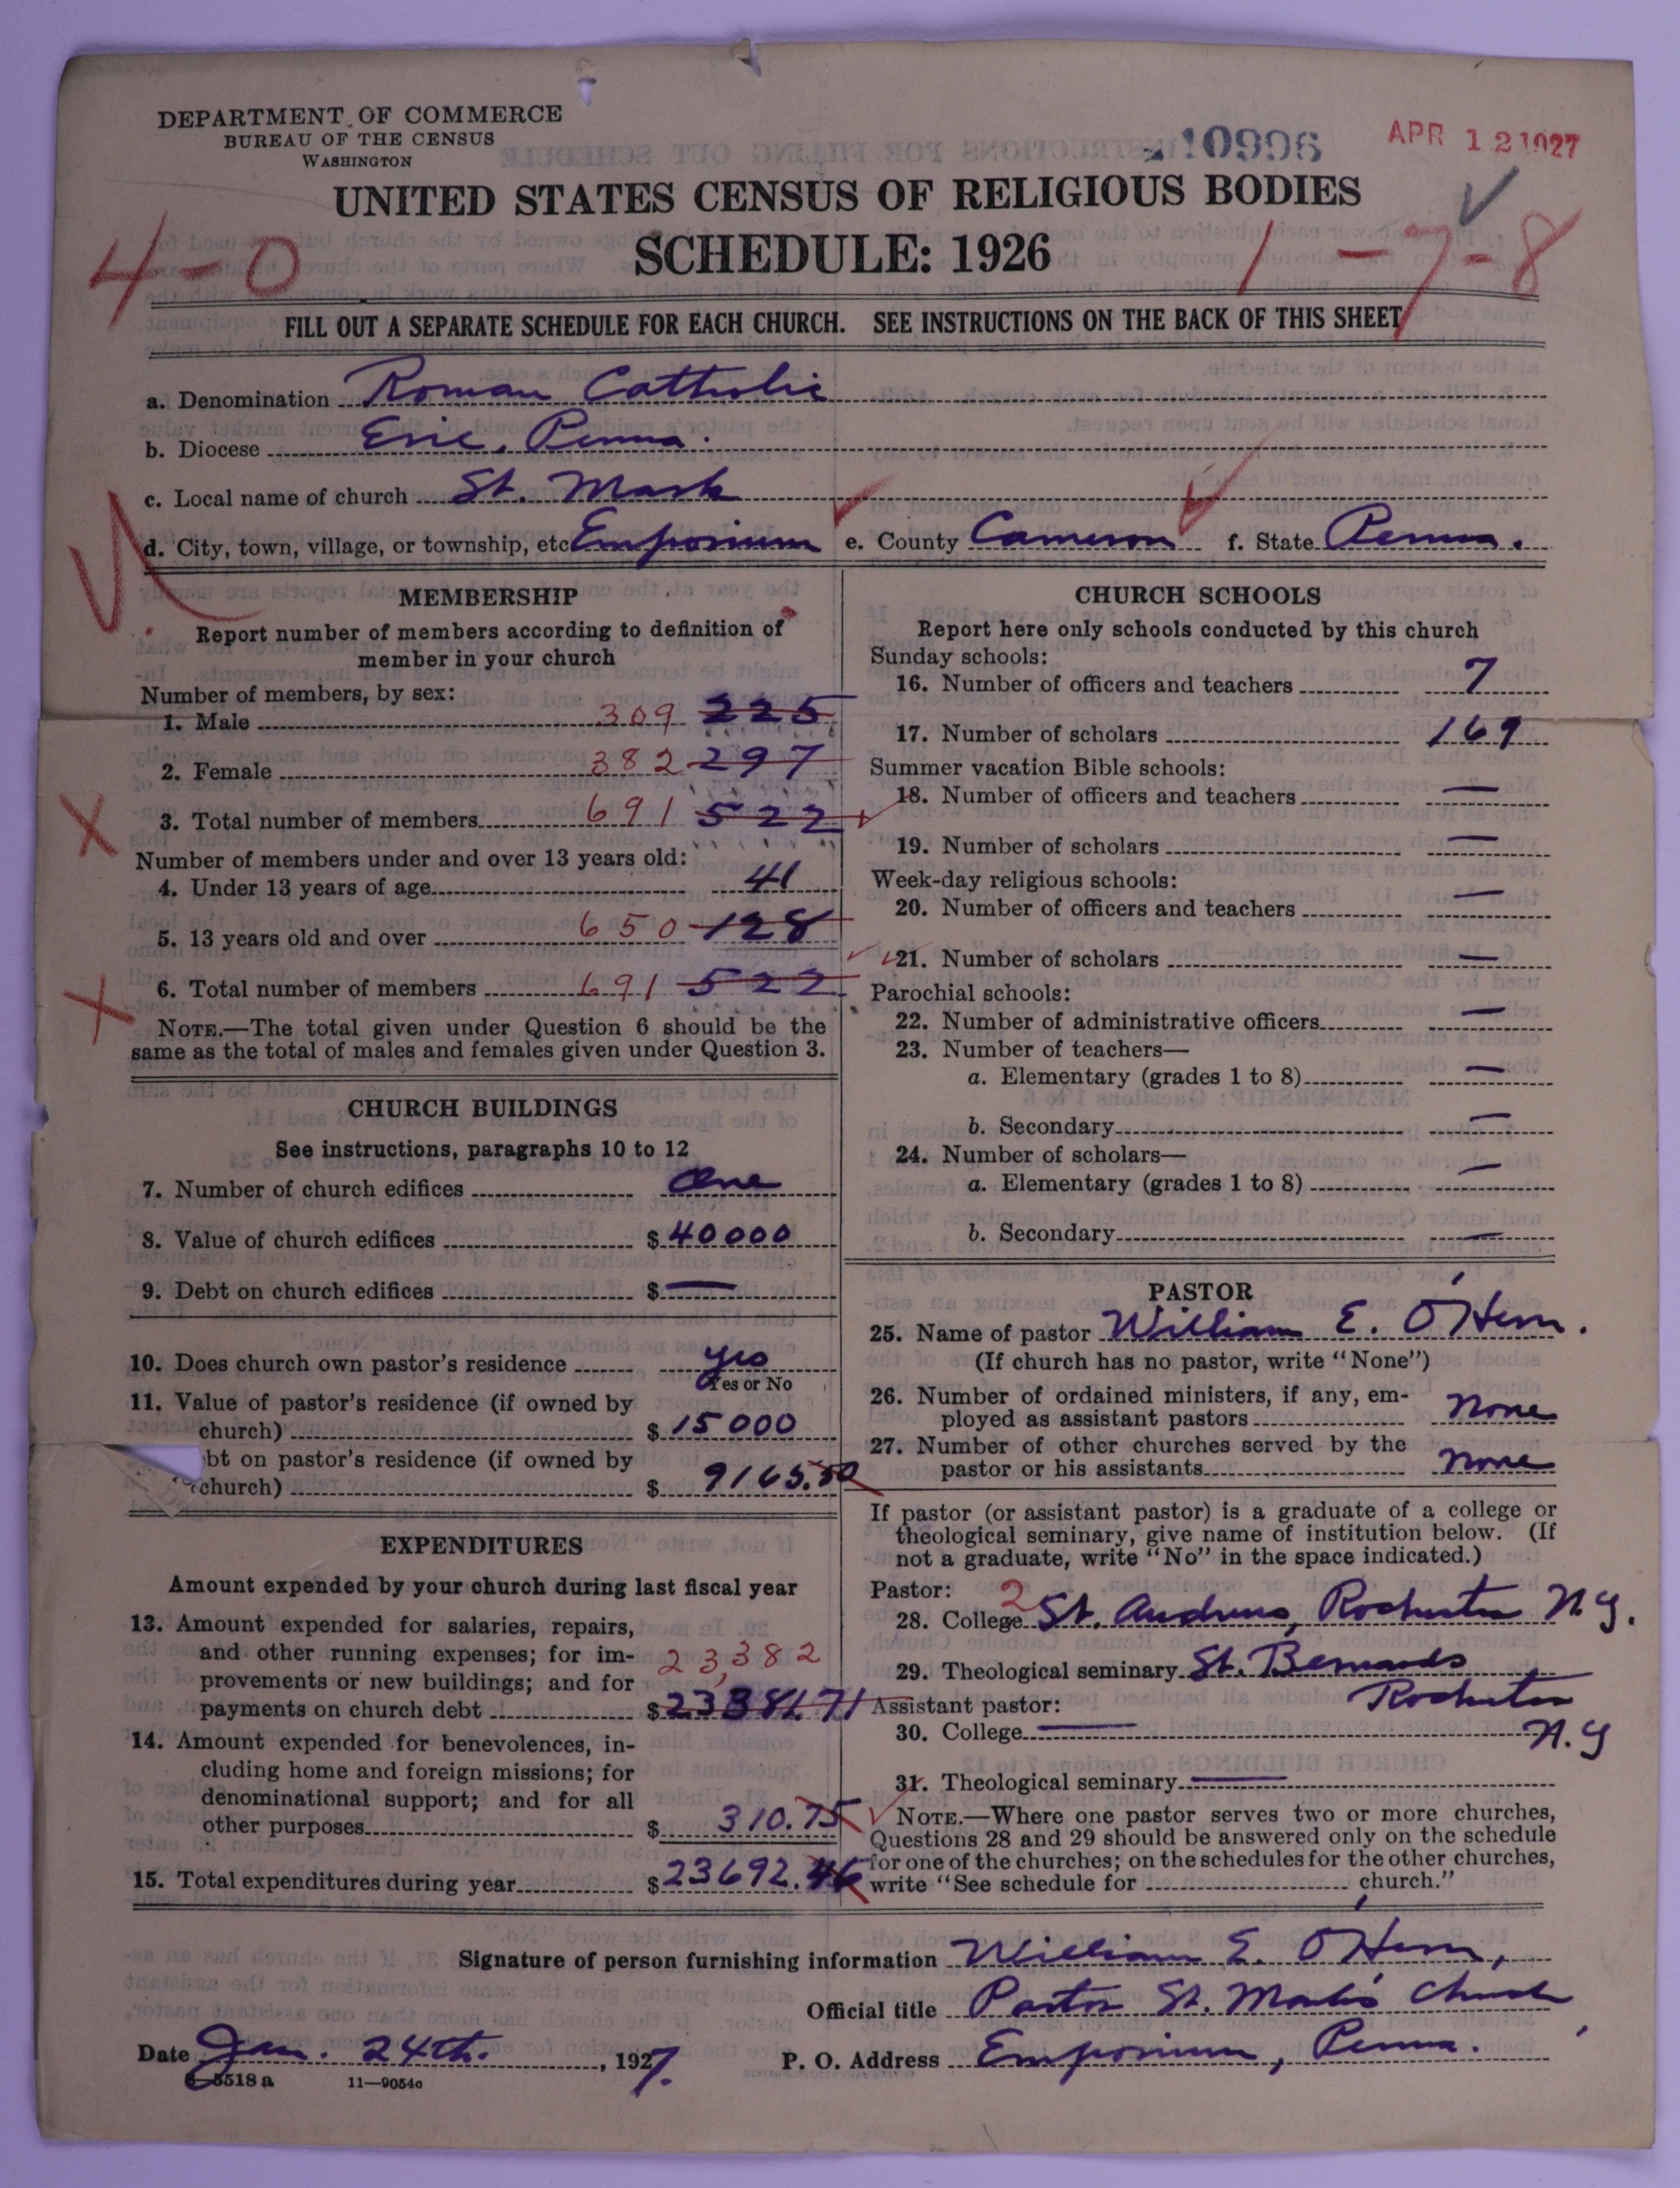 DEPARTMENT OF COMMERCE
BUREAU OF THE CENSUS
WASHINGTON
10996
APR 12 1927
UNITED STATES CENSUS OF RELIGIOUS BODIES
SCHEDULE: 1926
4-0
1-7-8
FILL OUT A SEPARATE SCHEDULE FOR EACH CHURCH. SEE INSTRUCTIONS ON THE BACK OF THIS SHEET
a. Denomination Roman Catholic
b. Diocese Erie, Penna.
c. Local name of church St. Mark
d. City, town, village, or township, etc Emporium e. County Cameron f. State Penna.
MEMBERSHIP
Report number of members according to definition of
member in your church
Number of members, by sex:
1. Male 309 225
2. Female 382 297
3. Total number of members 691 522
Number of members under and over 13 years old:
4. Under 13 years of age 41
5. 13 years old and over 650 128
6. Total number of members 691 522
NOTE.—The total given under Question 6 should be the
same as the total of males and females given under Question 3.
CHURCH BUILDINGS
See instructions, paragraphs 10 to 12
7. Number of church edifices One
8. Value of church edifices $40000
9. Debt on church edifices $ —
10. Does church own pastor's residence yes
Yes or No
11. Value of pastor's residence (if owned by
church) $15000
bt on pastor's residence (if owned by
church) $ 9165.50
EXPENDITURES
Amount expended by your church during last fiscal year
13. Amount expended for salaries, repairs,
and other running expenses; for im-
provements or new buildings; and for
payments on church debt 23,382 $23381.71
14. Amount expended for benevolences, in-
cluding home and foreign missions; for
denominational support; and for all
other purposes $ 310.75
15. Total expenditures during year $23692.46
CHURCH SCHOOLS
Report here only schools conducted by this church
Sunday schools:
16. Number of officers and teachers 7
17. Number of scholars 169
Summer vacation Bible schools:
18. Number of officers and teachers —
19. Number of scholars —
Week-day religious schools:
20. Number of officers and teachers —
21. Number of scholars —
Parochial schools:
22. Number of administrative officers —
23. Number of teachers—
a. Elementary (grades 1 to 8) —
b. Secondary —
24. Number of scholars—
a. Elementary (grades 1 to 8) —
b. Secondary —
PASTOR
25. Name of pastor William E. O'Hern.
(If church has no pastor, write "None")
26. Number of ordained ministers, if any, em-
ployed as assistant pastors None
27. Number of other churches served by the
pastor or his assistants None
If pastor (or assistant pastor) is a graduate of a college or
theological seminary, give name of institution below. (If
not a graduate, write "No" in the space indicated.)
Pastor: 2
28. College St. Andrews, Rochester N.Y.
29. Theological seminary St. Bernards
Rochester
N.Y
Assistant pastor:
30. College —
31. Theological seminary —
NOTE.—Where one pastor serves two or more churches,
Questions 28 and 29 should be answered only on the schedule
for one of the churches; on the schedules for the other churches,
write "See schedule for church."
Signature of person furnishing information William E. O'Hern,
Official title Pastor St. Mark's Church
Date Jan. 24th. , 1927. P. O. Address Emporium, Penna.
8—5518a 11—9054c